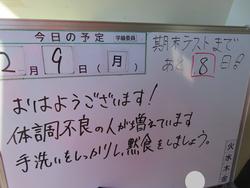 今日の予定 学級委員
2月9日(月)
期末テストまで
あと8日
おはようございます!
体調不良の人が増えています
手洗いをしっかりし、黙食をしましょう。
火水木金